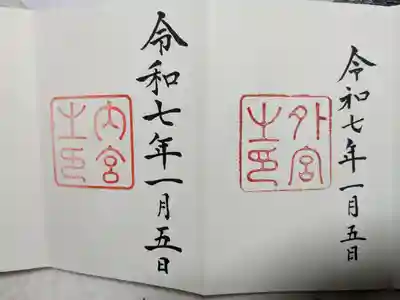 令和七年一月五日
外宮之印
令和七年一月五日
内宮之印